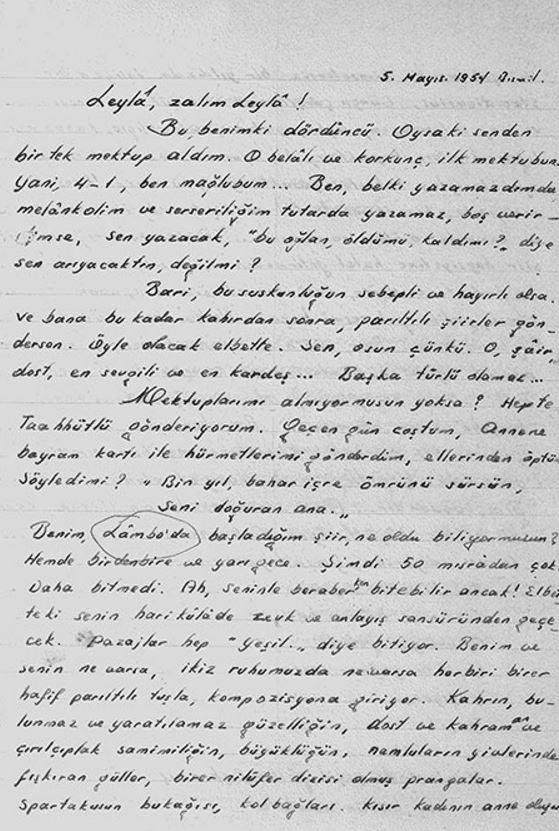 5. Mayıs. 1954
Leylâ, zalım Leylâ!
Bu benimki dördüncü. Oysaki senden
bir tek mektup aldım. O belâlı ve korkunç, ilk mektubun.
Yani, 4-1, ben mağlubum... Ben, belki yazamazdımda
melânkolim ve serseriliğim tutarda yazamaz, boş verir-
dimse, sen yazacak, "bu oğlan, öldümü kaldımı?" diye
sen arıyacaktın, değilmi?
Bari, bu suskunluğun sebepli ve hayırlı olsa.
ve bana bu kadar kahırdan sonra, parıltılı şiirler gön
dersen. Öyle olacak elbette. Sen, osun çünkü. O, şâir,
dost, en sevgili ve en kardeş... Başka türlü olamaz...
Mektuplarımı almıyormusun yoksa? Hepte
Taahhütlü gönderiyorum. Geçen gün coştum, Annene
bayram kartı ile hürmetlerimi gönderdüm, ellerinden öptü
Söyledimi? "Bin yıl, bahar içre ömrünü sürsün,
Seni doğuran ana."
Benim, Lâmbo'da başladığım şiir, ne oldu biliyormusun?
Hemde birdenbire ve yarı gece. Şimdi 50 mısradan çok.
Daha bitmedi. Ah, seninle beraberken bitebilir ancak! Elbet
teki senin harikülâde zevk ve anlayış sansüründen geçe
cek. Pazajlar hep "yeşil." diye bitiyor. Benim ve
senin ne varsa, ikiz ruhumuzda ne varsa herbiri birer
hafif parıltılı tuşla, kompozisyona giriyor. Kahrın, bu-
lunmaz ve yaratılamaz güzelliğin, dost ve kahraman ve
çırılçıplak samimiliğin, büyüklüğün, namluların yivlerinde
fışkıran güller, birer nilüfer dizisi olmuş prangalar.
Spartakusun bukağısı, kol bağları. Kısır kadının anne oluşu